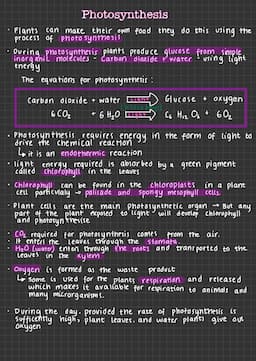 Photosynthesis
• Plants can make their own food they do this using the
process of photosynthesis
• During photosynthesis plants produce glucose from simple
inorganic molecules - Carbon dioxide + water - using light
energy
The equations for photosynthesis :
Carbon dioxide + water light Glucose + oxygen
6 CO2 + 6 H2O light C6 H12 O6 + 6O2
• Photosynthesis requires energy in the form of light to
drive the chemical reaction
↳ it is an endothermic reaction
• light energy required is absorbed by a green pigment
called chlorophyll in the leaves
• Chlorophyll can be found in the chloroplasts in a plant
cell particularly → palisade and spongy mesophyll cells.
• Plant cells are the main photosynthetic organ → But any
part of the plant exposed to light will develop chlorophyll
and photosynthesise
• CO2 required for photosynthesis comes from the air.
It enters the leaves through the stomata.
• H2O (water) enters through the roots and transported to the
leaves in the xylem
• Oxygen is formed as the waste product
↳ Some is used for the plants respiration and released
which makes it available for respiration to animals and
many microorganisms.
• During the day, provided the rate of photosynthesis is
sufficiently high, plant leaves and water plants give out
oxygen